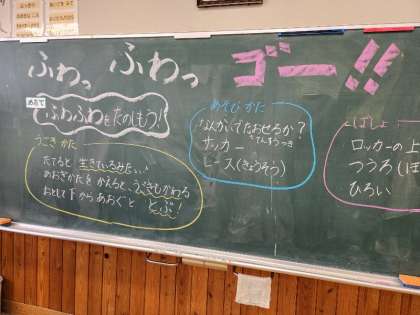 ふわっ ふわっ ゴー!!
めあて
ふわふわをたのしもう!
うごきかた
たてると 生きているみたい
あおぎかたを かえると、うごきもかわる
おとして下から あおぐと とぶ!
あそびかた
なんかいでたおせるか?
てんすうつき
サッカー
レース(きょうそう)
ばしょ
ロッカーの上
つうろ(ほ
ひろい